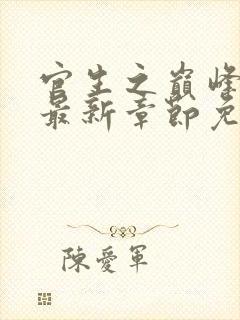 官生之巔峰
最新章節免
陳愛軍